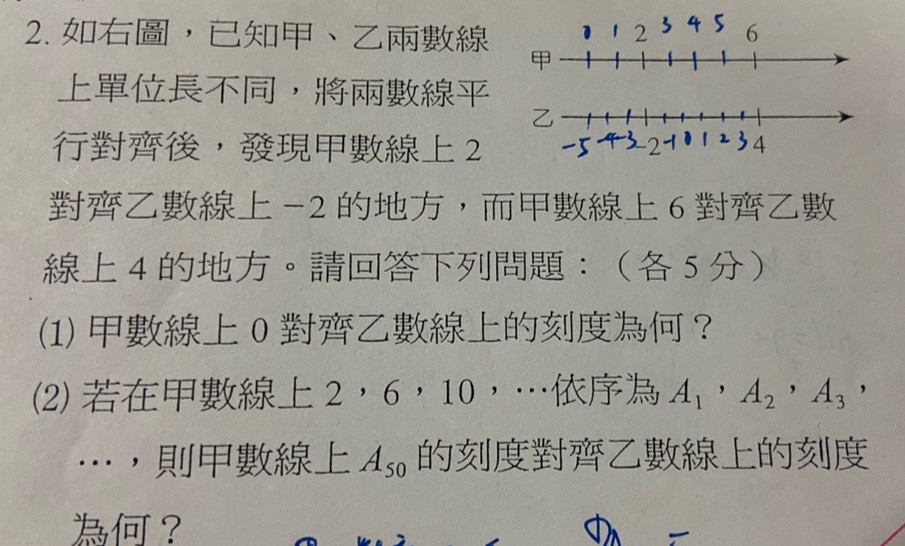 2. 如右圖,已知甲、乙兩數線
0 1 2 3 4 5 6
甲
上單位長不同,將兩數線平
乙
行對齊後,發現甲數線上 2
-5 -4 -3 -2 -1 0 1 2 3 4
對齊乙數線上 -2 的地方,而甲數線上 6 對齊乙數
線上 4 的地方。請回答下列問題:(各 5 分)
(1) 甲數線上 0 對齊乙數線上的刻度為何?
(2) 若在甲數線上 2,6,10,…依序為 A₁,A₂,A₃,
…,則甲數線上 A₅₀ 的刻度對齊乙數線上的刻度
為何?